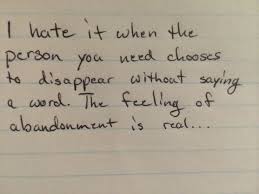 I hate it when the
person you need chooses
to disappear without saying
a word. The feeling of
abandonment is real...